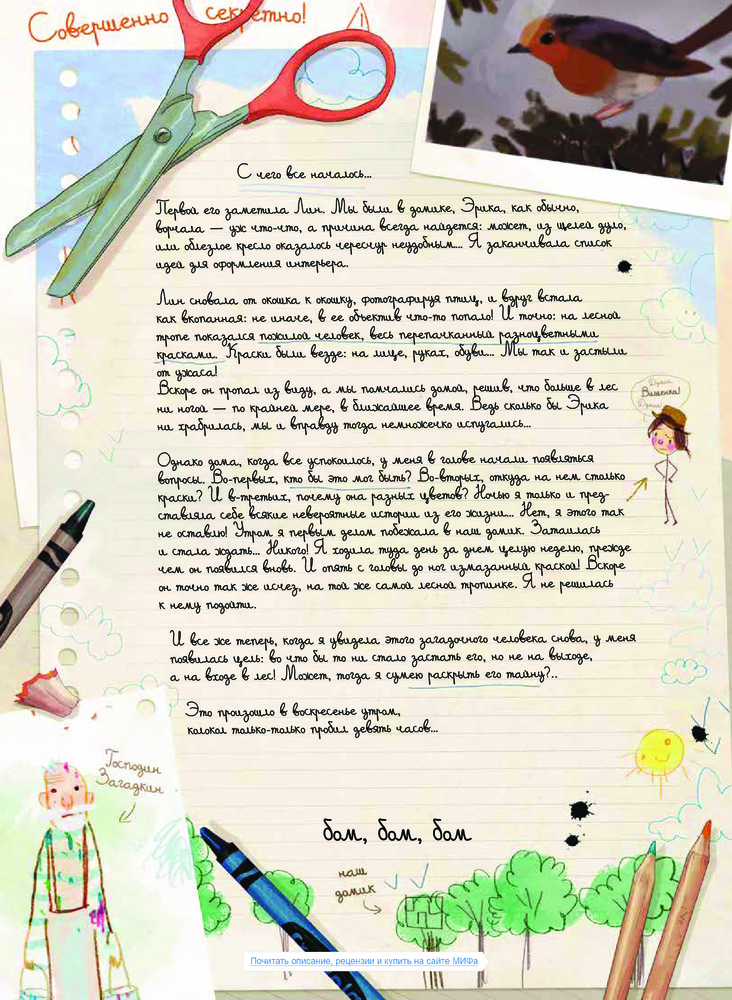 Совершенно секретно!
С чего все началось...
Первой его заметила Лин. Мы были в домике, Эрика, как обычно,
ворчала — уж что-что, а причина всегда найдется: может, из щелей дуло,
или облезлое кресло оказалось чересчур неудобным... Я заканчивала список
идей для оформления интерьера.
Лин сновала от окошка к окошку, фотографируя птиц, и вдруг встала
как вкопанная: не иначе, в ее объектив что-то попало! И точно: на лесной
тропе показался пожилой человек, весь перепачканный разноцветными
красками. Краски были везде: на лице, руках, обуви... Мы так и застыли
от ужаса!
Вскоре он пропал из виду, а мы помчались домой, решив, что больше в лес
ни ногой — по крайней мере, в ближайшее время. Ведь сколько бы Эрика
ни храбрилась, мы и вправду тогда немножечко испугались...
Однако дома, когда все успокоилось, у меня в голове начали появляться
вопросы. Во-первых, кто бы это мог быть? Во-вторых, откуда на нем столько
краски? И в-третьих, почему она разных цветов? Ночью я только и пред-
ставляла себе всякие невероятные истории из его жизни... Нет, я этого так
не оставлю! Утром я первым делом побежала в наш домик. Затаилась
и стала ждать... Никого! Я ходила туда день за днем целую неделю, прежде
чем он появился вновь. И опять с головы до ног измазанный краской! Вскоре
он точно так же исчез, на той же самой лесной тропинке. Я не решилась
к нему подойти.
И все же теперь, когда я увидела этого загадочного человека снова, у меня
появилась цель: во что бы то ни стало застать его, но не на выходе,
а на входе в лес! Может, тогда я сумею раскрыть его тайну?..
Это произошло в воскресенье утром,
колокол только-только пробил девять часов...
бом, бом, бом
Вишенка!
Господин
Загадкин
наш
домик
Почитать описание, рецензии и купить на сайте МИФа